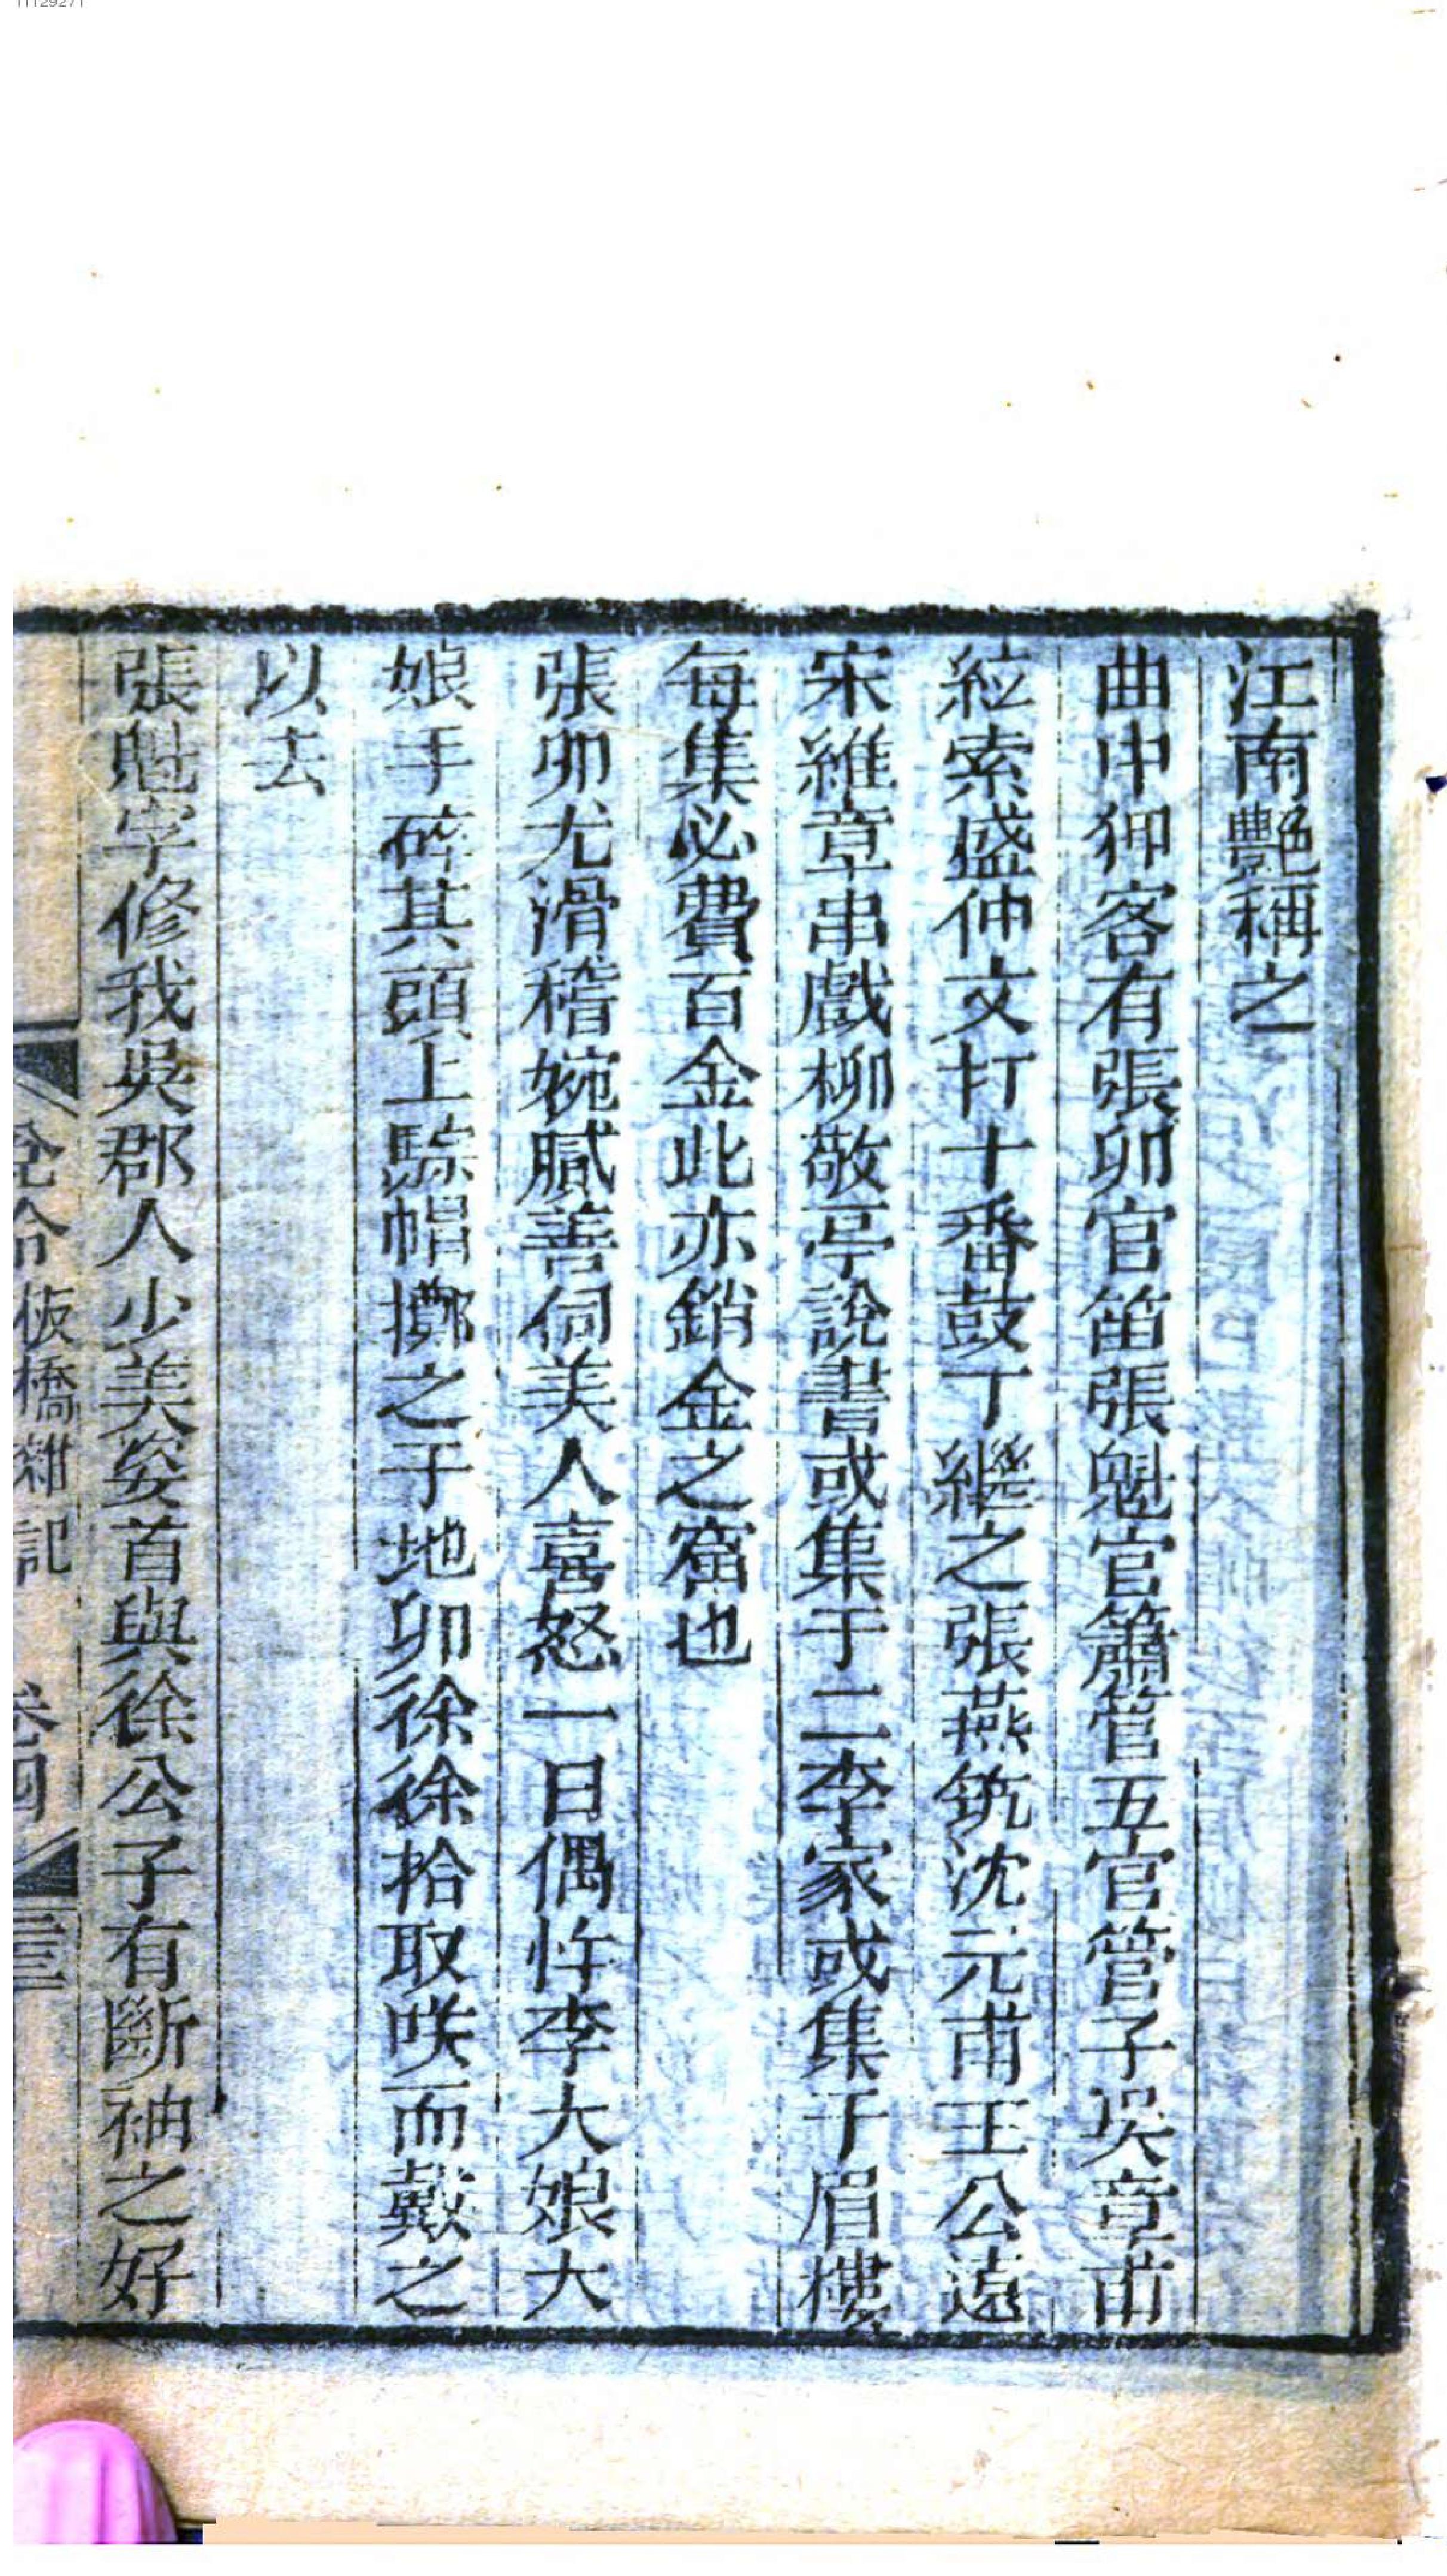 江南艷稱之
曲中狎客有張卯官笛張魁官簫管五官管子吳章甫
絃索盛仲文打十番鼓丁繼之張燕筑沈元甫王公遠
宋維章串戲柳敬亭說書或集于二李家或集于眉樓
每集必費百金此亦銷金之窟也
張卯尤滑稽婉膩善伺美人喜怒一日偶忤李大娘大
娘手碎其頭上騌帽擲之于地卯徐徐拾取咲而戴之
以去
張魁字修我吳郡人少美姿首與徐公子有斷袖之好
板橋雜記